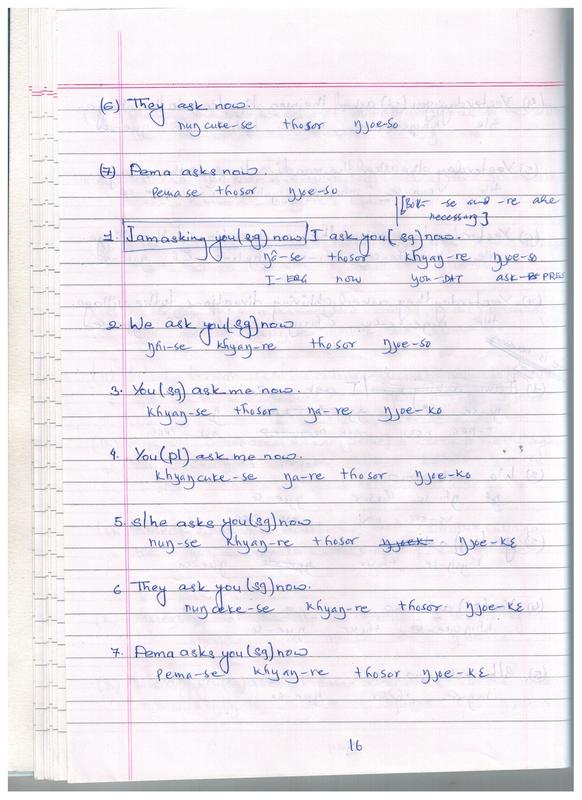 (6) They ask now.
nuŋcuke-se thosor ŋjoe-so
(7) Pema asks now.
Pema se thosor ŋjoe-so
[Both -se and -re are
necessary]
1. I am asking you(sg) now/I ask you(sg) now.
ŋê-se thosor khyaŋ-re ŋjoe-so
I-ERG now you-DAT ask-PRES
2. We ask you(sg) now
ŋhi-se khyaŋ-re thosor ŋjoe-so
3. You(sg) ask me now.
khyaŋ-se thosor ŋa-re ŋjoe-ko
4. You(pl) ask me now.
khyaŋcuke-se ŋa-re thosor ŋjoe-ko
5. s/he asks you(sg) now
nuŋ-se khyaŋ-re thosor ŋjoe-kɛ
6 They ask you(sg) now.
nuŋcuke-se khyaŋ-re thosor ŋjoe-kɛ
7. Pema asks you(sg) now
Pema-se khyaŋ-re thosor ŋjoe-kɛ
16